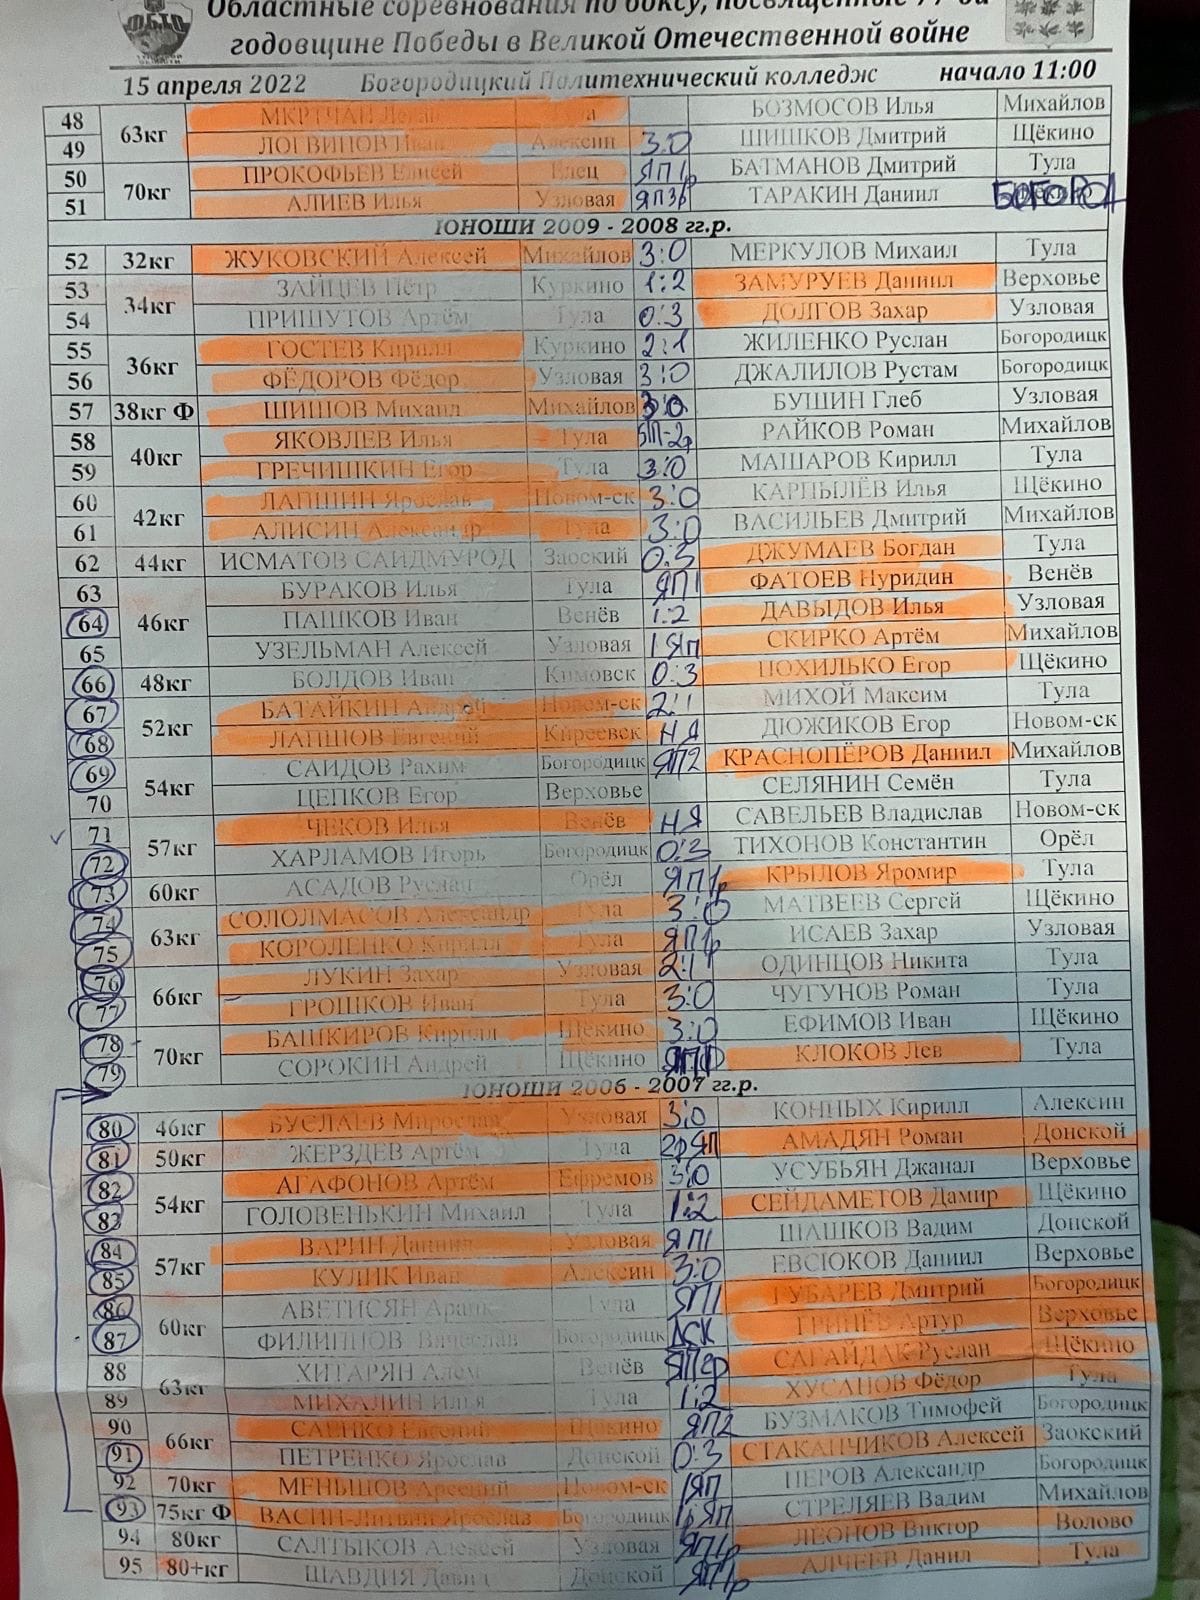 Областные соревнования по боксу, посвященные 77-ой
годовщине Победы в Великой Отечественной войне
15 апреля 2022 Богородицкий Политехнический колледж начало 11:00
48 63кг МКРТЧАН БОЗМОСОВ Илья Михайлов
49 ЛОГВИНОВ Иван Алексин 3:0 ШИШКОВ Дмитрий Щёкино
50 70кг ПРОКОФЬЕВ Елисей Елец ЯП1р БАТМАНОВ Дмитрий Тула
51 АЛИЕВ Илья Узловая ЯП3р ТАРАКИН Даниил БОГОРОД
ЮНОШИ 2009 - 2008 гг.р.
52 32кг ЖУКОВСКИЙ Алексей Михайлов 3:0 МЕРКУЛОВ Михаил Тула
53 34кг ЗАЙЦЕВ Пётр Куркино 1:2 ЗАМУРУЕВ Даниил Верховье
54 ПРИШУТОВ Артём Тула 0:3 ДОЛГОВ Захар Узловая
55 36кг ГОСТЕВ Кирилл Куркино 2:1 ЖИЛЕНКО Руслан Богородицк
56 ФЁДОРОВ Фёдор Узловая 3:0 ДЖАЛИЛОВ Рустам Богородицк
57 38кг Ф ШИШОВ Михаил Михайлов 3:0 БУШИН Глеб Узловая
58 40кг ЯКОВЛЕВ Илья Тула ЯП-2р РАЙКОВ Роман Михайлов
59 ГРЕЧИШКИН Егор Тула 3:0 МАШАРОВ Кирилл Тула
60 42кг ЛАПШИН Ярослав Новом-ск 3:0 КАРПЫЛЁВ Илья Щёкино
61 АЛИСИН Александр Тула 3:0 ВАСИЛЬЕВ Дмитрий Михайлов
62 44кг ИСМАТОВ САИДМУРОД Заоский 0:3 ДЖУМАЕВ Богдан Тула
63 46кг БУРАКОВ Илья Тула ЯП1 ФАТОЕВ Нуридин Венёв
64 ПАШКОВ Иван Венёв 1:2 ДАВЫДОВ Илья Узловая
65 УЗЕЛЬМАН Алексей Узловая 1 ЯП СКИРКО Артём Михайлов
66 48кг БОЛДОВ Иван Кимовск 0:3 ПОХИЛЬКО Егор Щёкино
67 52кг БАТАЙКИН Андрей Новом-ск 2:1 МИХОЙ Максим Тула
68 ЛАПШОВ Евгений Киреевск НЯ ДЮЖИКОВ Егор Новом-ск
69 54кг САИДОВ Рахим Богородицк ЯП2 КРАСНОПЁРОВ Даниил Михайлов
70 ЦЕПКОВ Егор Верховье СЕЛЯНИН Семён Тула
71 57кг ЧЕКОВ Илья Венёв НЯ САВЕЛЬЕВ Владислав Новом-ск
72 ХАРЛАМОВ Игорь Богородицк 0:3 ТИХОНОВ Константин Орёл
73 60кг АСАДОВ Руслан Орёл ЯП1р КРЫЛОВ Яромир Тула
74 63кг СОЛОЛМАСОВ Александр Тула 3:0 МАТВЕЕВ Сергей Щёкино
75 КОРОЛЕНКО Кирилл Тула ЯП1р ИСАЕВ Захар Узловая
76 66кг ЛУКИН Захар Узловая 2:1 ОДИНЦОВ Никита Тула
77 ГРОШКОВ Иван Тула 3:0 ЧУГУНОВ Роман Тула
78 70кг БАШКИРОВ Кирилл Щёкино 3:0 ЕФИМОВ Иван Щёкино
79 СОРОКИН Андрей Щёкино КЛОКОВ Лев Тула
ЮНОШИ 2006 - 2007 гг.р.
80 46кг БУСЛАЕВ Мирослав Узловая 3:0 КОННЫХ Кирилл Алексин
81 50кг ЖЕРЗДЕВ Артём Тула 2рЯП АМАДЯН Роман Донской
82 54кг АГАФОНОВ Артём Ефремов 3:0 УСУБЬЯН Джанал Верховье
83 ГОЛОВЕНЬКИН Михаил Тула 1:2 СЕЙДАМЕТОВ Дамир Щёкино
84 57кг ВАРИН Даниил Узловая ЯП1 ШАШКОВ Вадим Донской
85 КУЛИК Иван Алексин 3:0 ЕВСЮКОВ Даниил Верховье
86 60кг АВЕТИСЯН Тула ЯП1 ГУБАРЕВ Дмитрий Богородицк
87 ФИЛИППОВ Вячеслав Богородицк ДСК ГРИНЁВ Артур Верховье
88 63кг ХИТАРЯН Алем Венёв ЯП2р САГАЙДАК Руслан Щёкино
89 МИХАЛИН Илья Тула 1:2 ХУСАНОВ Фёдор Тула
90 66кг САЕНКО Евгений Щёкино ЯП2 БУЗМАКОВ Тимофей Богородицк
91 ПЕТРЕНКО Ярослав Донской 0:3 СТАКАНЧИКОВ Алексей Заокский
92 70кг МЕНЬШОВ Арсений Новом-ск 1ЯП ПЕРОВ Александр Богородицк
93 75кг Ф ВАСИН-Литвин Ярослав Богородицк 1рЯП СТРЕЛЯЕВ Вадим Михайлов
94 80кг САЛТЫКОВ Алексей Узловая ЯП1р ЛЕОНОВ Виктор Волово
95 80+кг ШАВДИЯ Давид Донской ЯП1р АЛЧЕЕВ Данил Тула